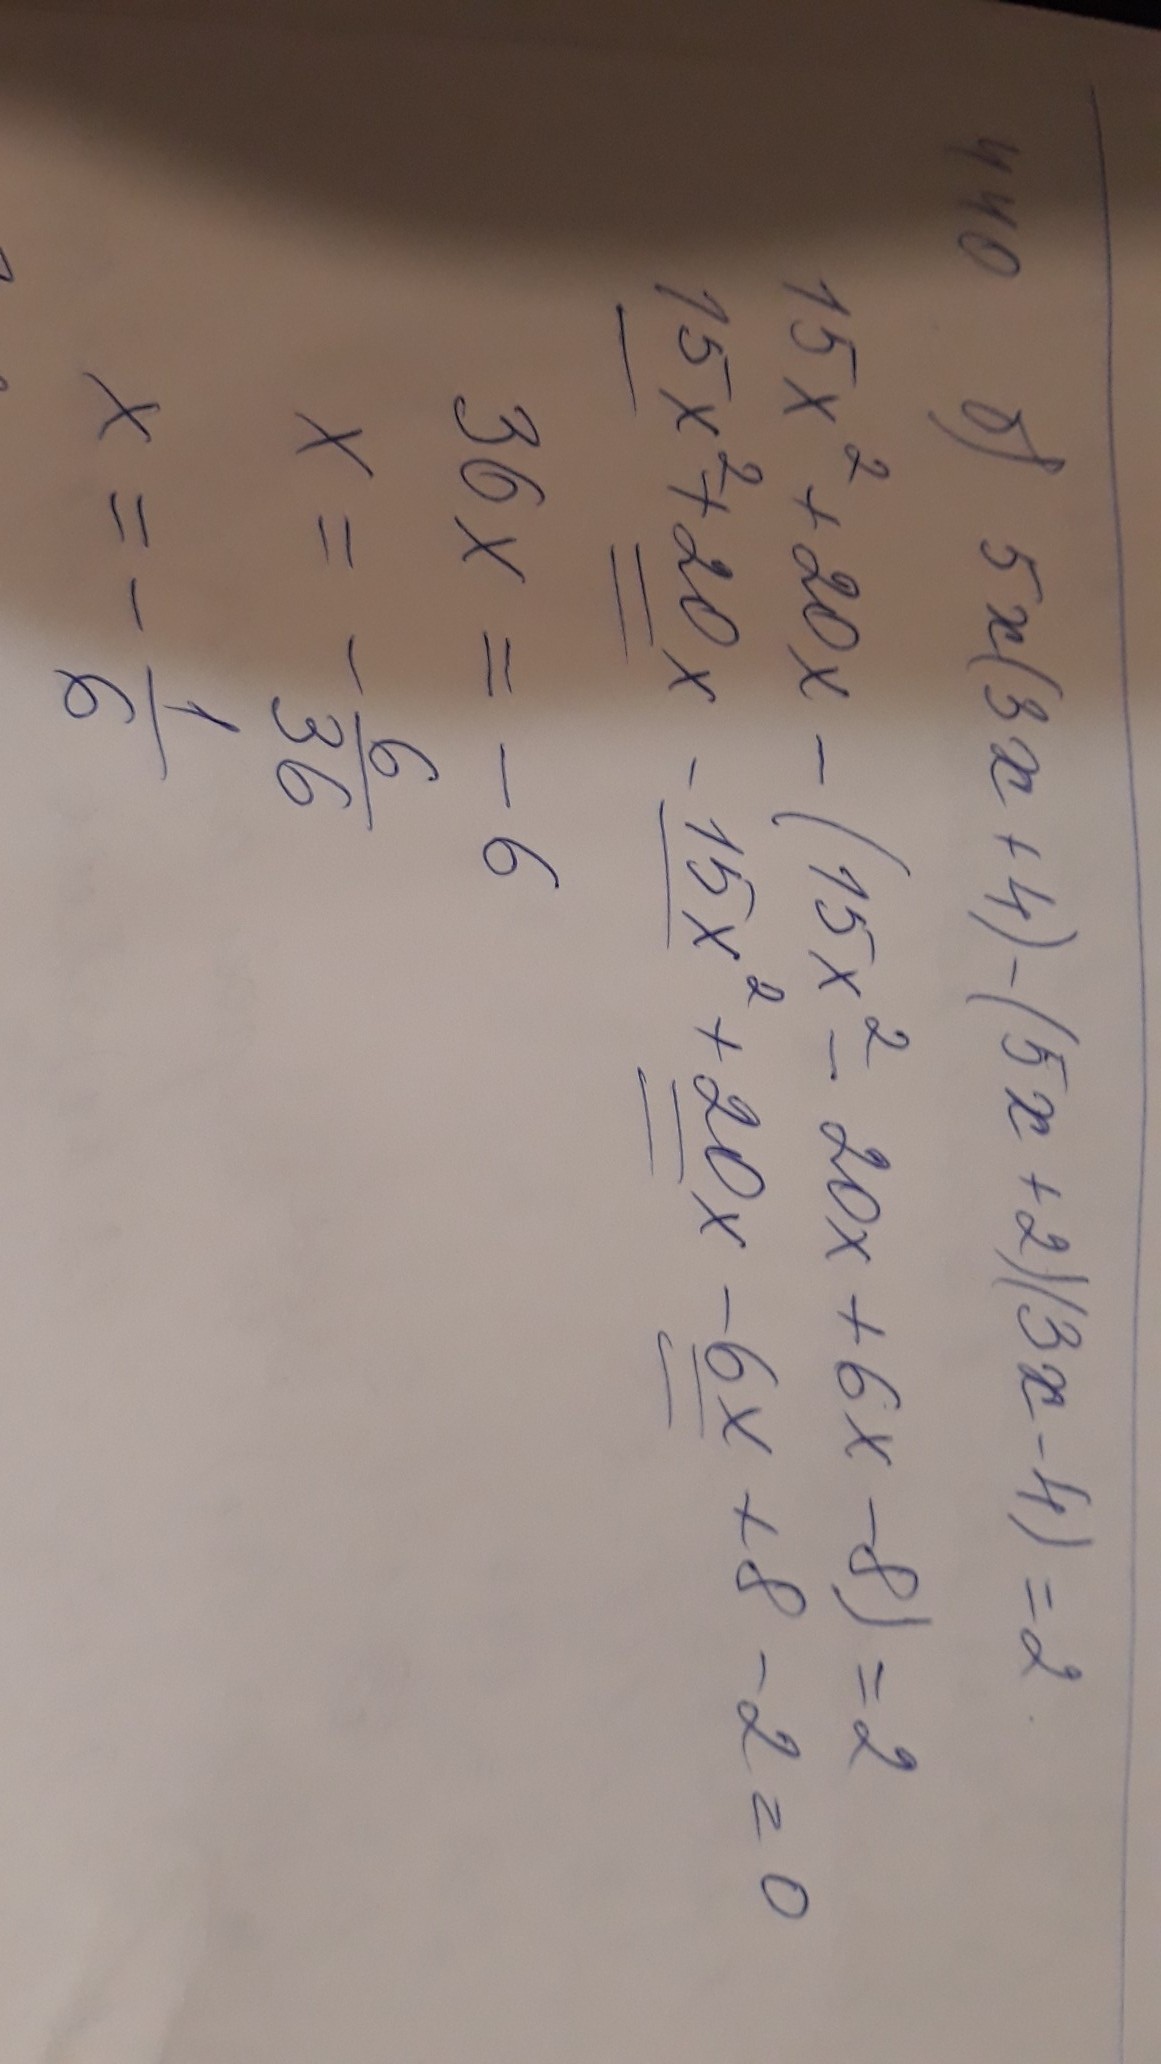 440 б) 5x(3x+4)-(5x+2)(3x-4)=2
15x²+20x-(15x²-20x+6x-8)=2
15x²+20x-15x²+20x-6x+8-2=0
36x=-6
x=-6/36
x=-1/6